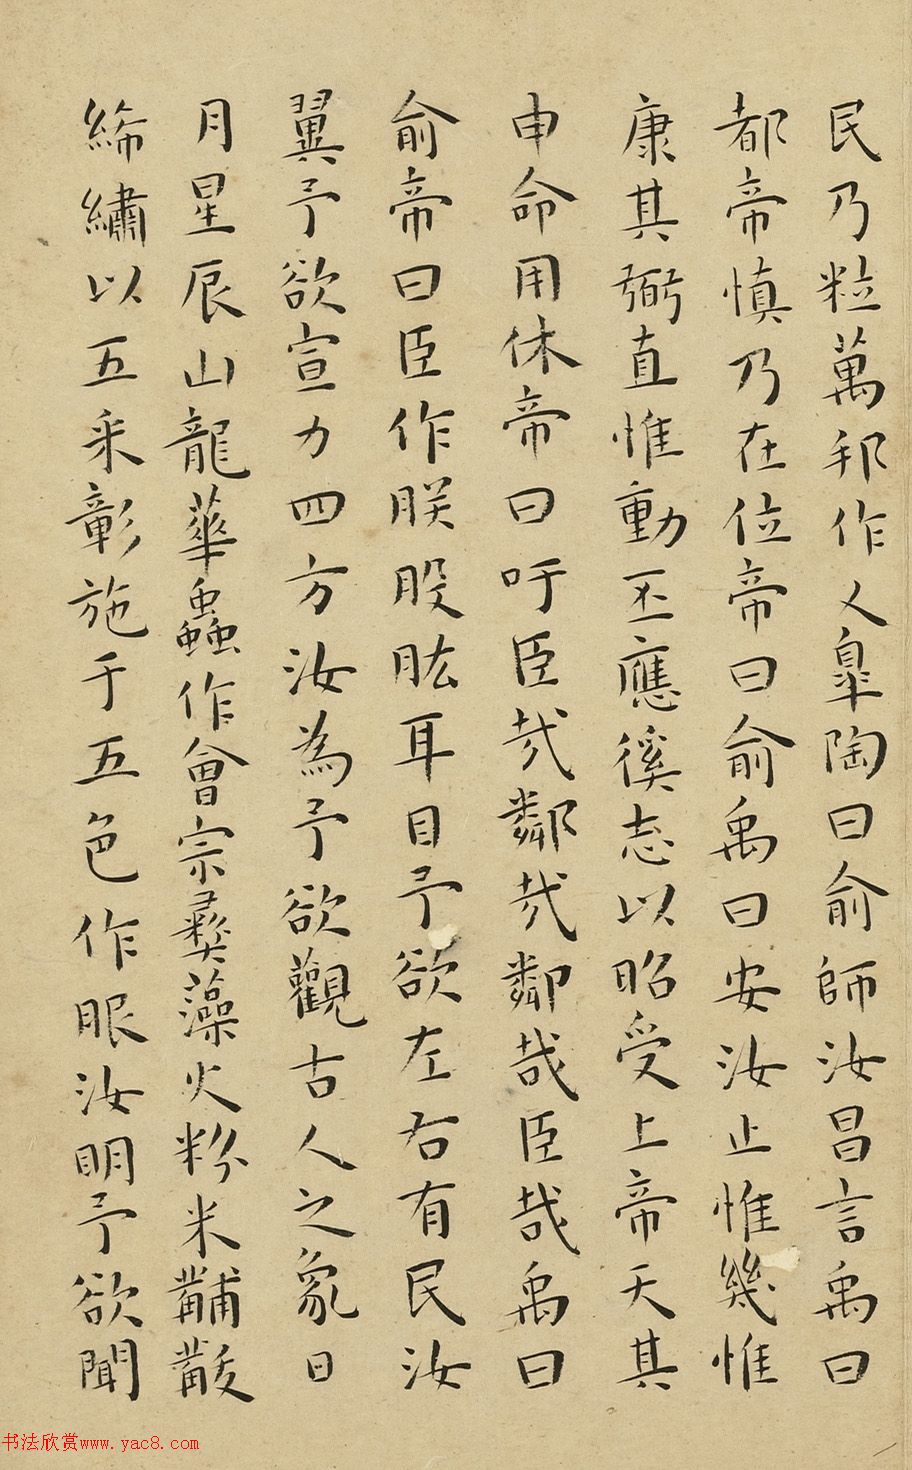 民乃粒萬邦作乂皐陶曰俞師汝昌言禹曰
都帝慎乃在位帝曰俞禹曰安汝止惟幾惟
康其弼直惟動丕應徯志以昭受上帝天其
申命用休帝曰吁臣哉鄰哉鄰哉臣哉禹曰
俞帝曰臣作朕股肱耳目予欲左右有民汝
翼予欲宣力四方汝為予欲觀古人之象日
月星辰山龍華蟲作會宗彝藻火粉米黼黻
絺繡以五采彰施于五色作服汝明予欲聞
书法欣赏www.yac8.com